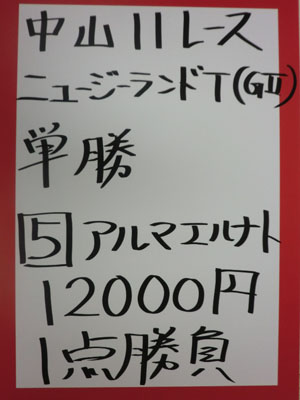 中山11レース
ニュージーランドT(GⅡ)
単勝
5 アルマエルナト
12000円
1点勝負